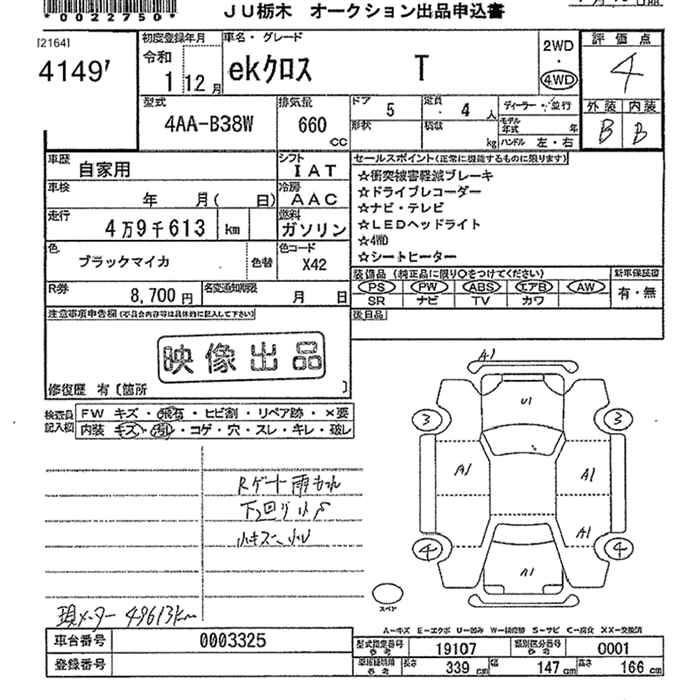 *0022750*
JU栃木 オークション出品申込書
[2164]
4149
初度登録年月
令和
1 12月
車名・グレード
ekクロス T
2WD
・
4WD
評価点
4
外装 内装
B B
型式
4AA-B38W
排気量
660 CC
ドア 5
定員 4 人
形状
積載 kg
ディーラー・並行
モデル年式 年
ハンドル 左・右
車歴 自家用
シフト IAT
車検 年 月( 日)
冷房 AAC
走行 4万9千613 km
燃料 ガソリン
色 ブラックマイカ
色替
色コード X42
R券 8,700円
名変通知期限 月 日
セールスポイント(正常に機能するものに限ります)
☆衝突被害軽減ブレーキ
☆ドライブレコーダー
☆ナビ・テレビ
☆LEDヘッドライト
☆4WD
☆シートヒーター
装備品(純正品に限り○をつけてください)
新車保証書
PS PW ABS エアB AW
有・無
SR ナビ TV カワ
後日品
注意事項申告欄(不具合内容等は具体的に記入して下さい)
映像出品
修復歴 有〔箇所 〕
検査員記入欄
FW キズ・飛石・ヒビ割・リペア跡・×要
内装 キズ・汚れ・コゲ・穴・スレ・キレ・破レ
Rゲート雨もれ
下回り小S
小キズ 小U
現メーター 49613km
A1
U1
3 3
A1 A1
A1
4 4
A1
スペア
A-キズ E-エクボ U-凹み W-補修跡 S-サビ C-腐食 XX-交換済
車台番号 0003325
登録番号
型式指定番号 参考 19107
類別区分番号 参考 0001
車検証規格 参考 長さ 339 cm 幅 147 cm 高さ 166 cm